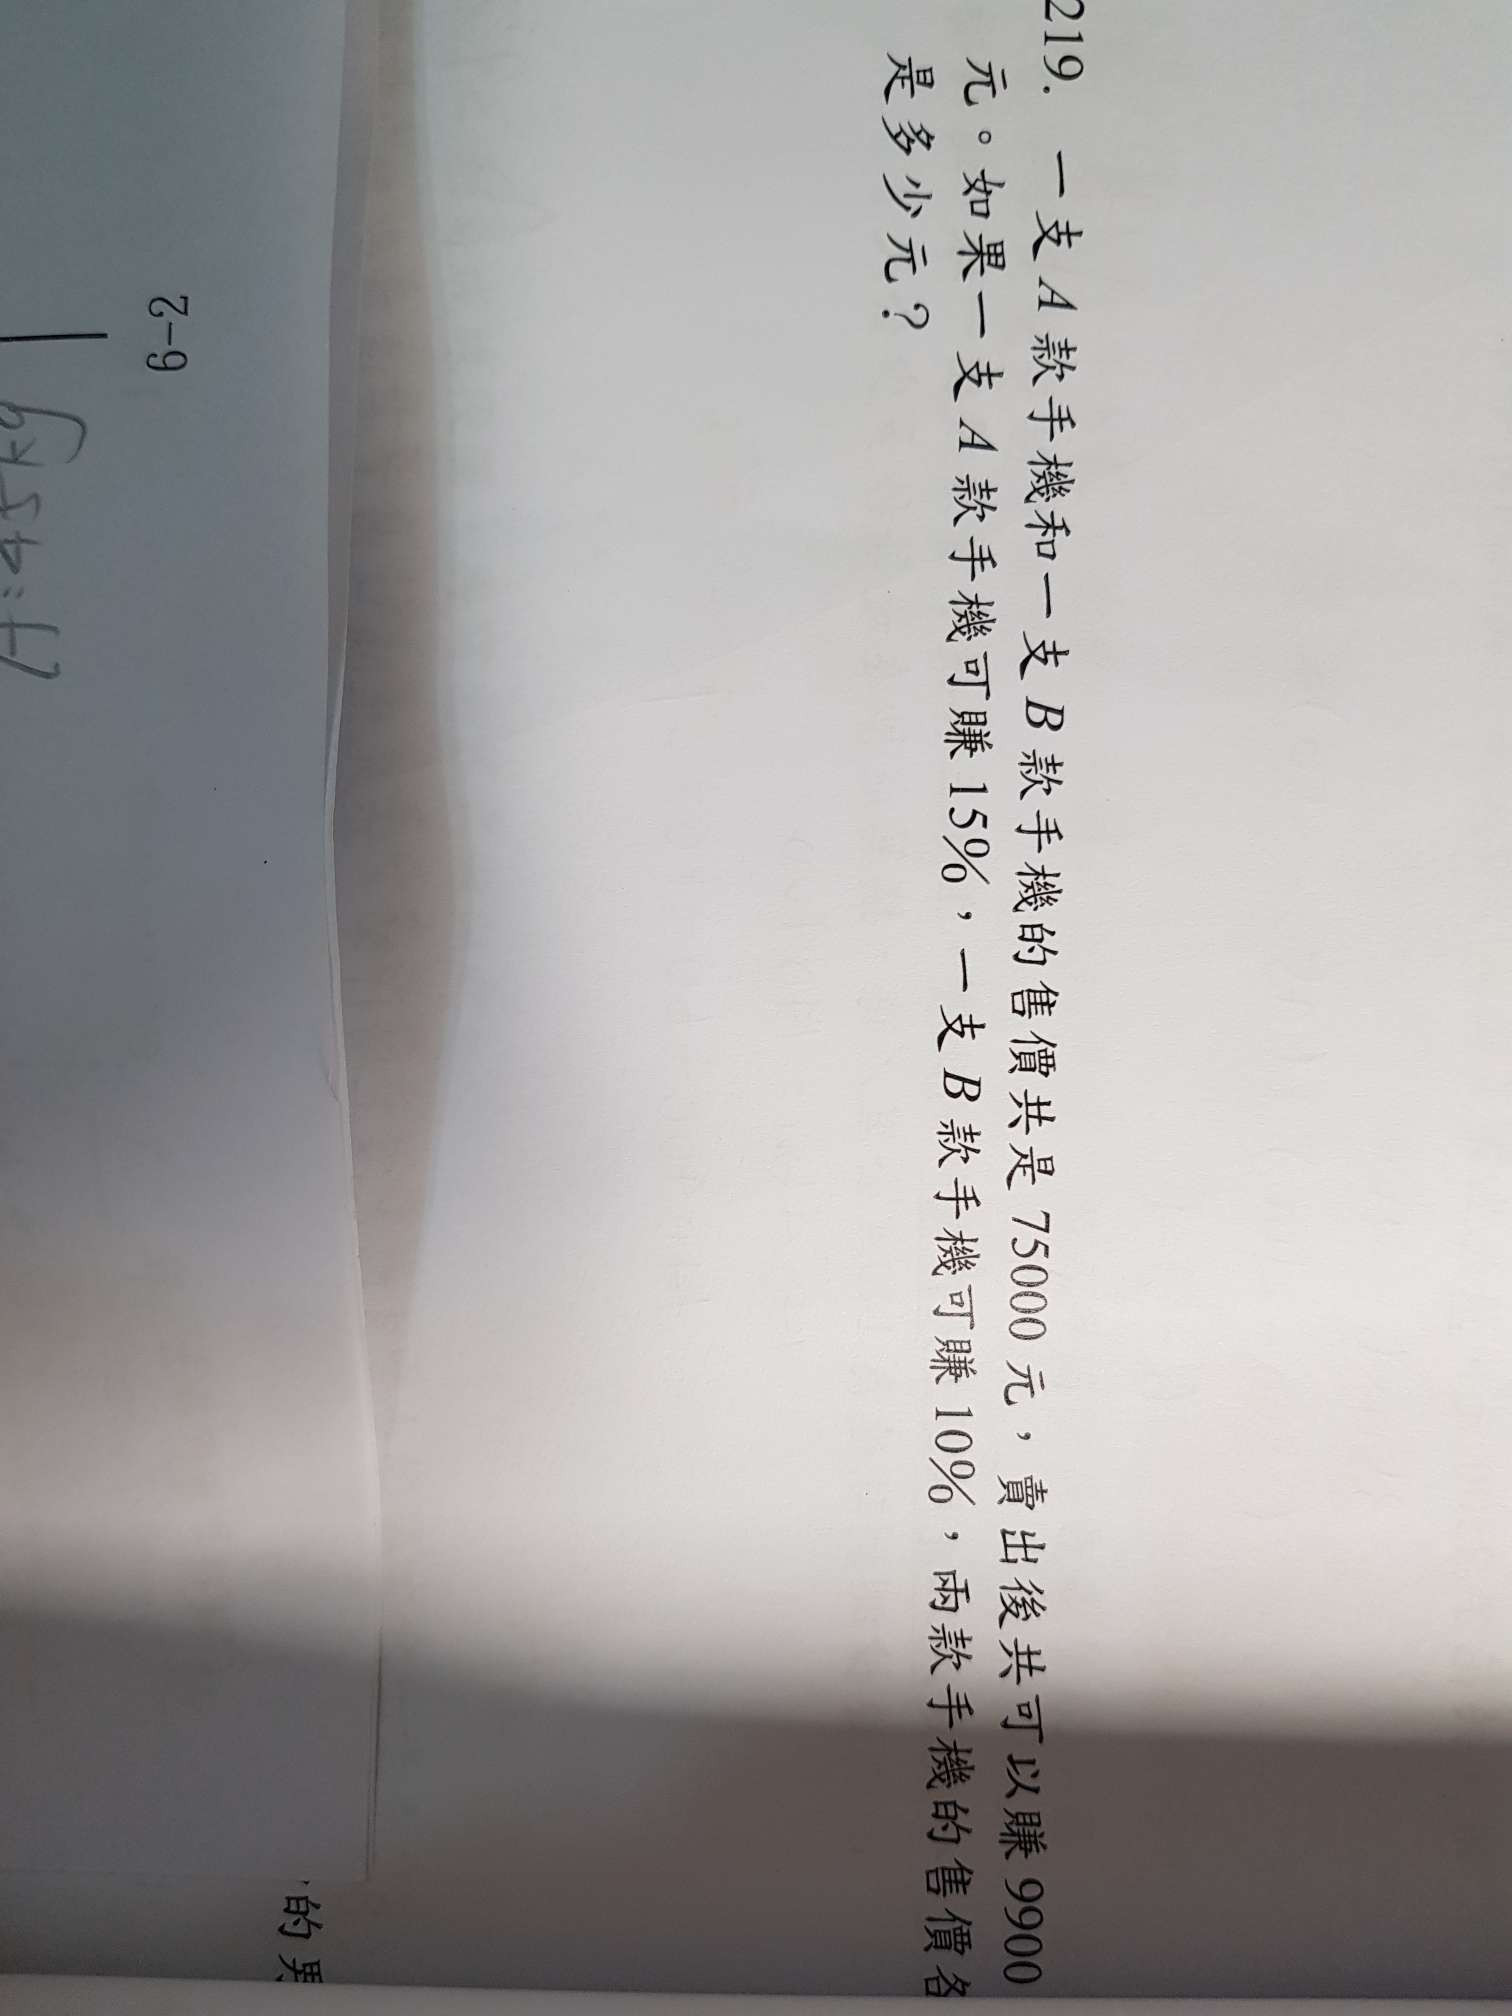 219. 一支 A 款手機和一支 B 款手機的售價共是 75000 元，賣出後共可以賺 9900
元。如果一支 A 款手機可賺 15%，一支 B 款手機可賺 10%，兩款手機的售價各
是多少元？
6-2
A=45kg
，的男